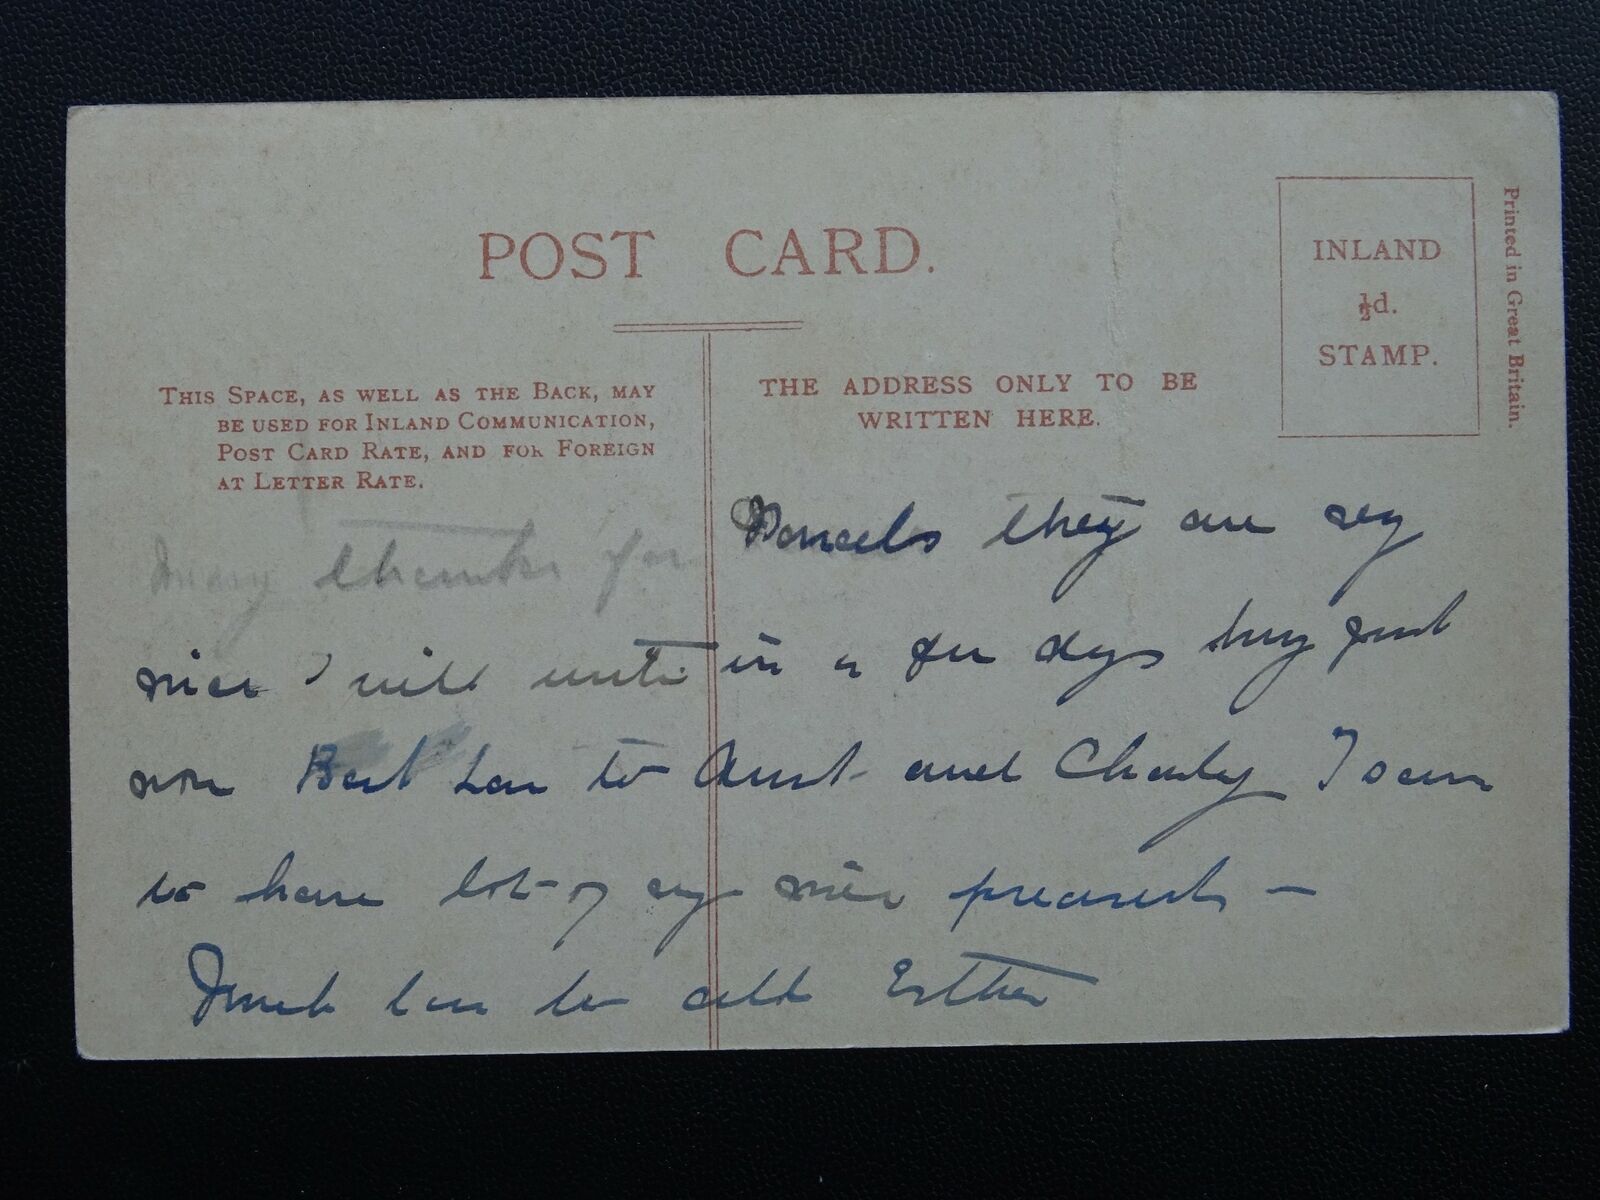 POST CARD.
INLAND
½d.
STAMP.
Printed in Great Britain.
THIS SPACE, AS WELL AS THE BACK, MAY
BE USED FOR INLAND COMMUNICATION,
POST CARD RATE, AND FOR FOREIGN
AT LETTER RATE.
THE ADDRESS ONLY TO BE
WRITTEN HERE.
Many thanks for Parcels they are very
nice I will write in a few days busy just
now Best Love to Aunt and Charley I seem
to have lot of very nice presents –
Much love to all Esther